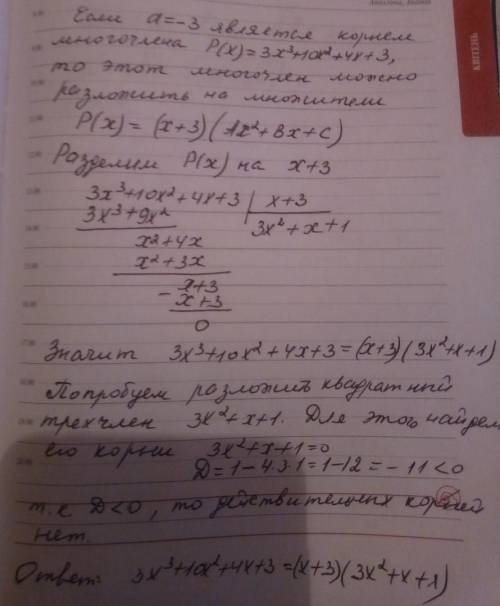 Если a=-3 является корнем
многочлена P(x)=3x³+10x²+4x+3,
то этот многочлен можно
разложить на множители
P(x)=(x+3)(Ax²+Bx+C)
Разделим P(x) на x+3
3x³+10x²+4x+3 | x+3
3x³+9x² 3x²+x+1
x²+4x
x²+3x
- x+3
x+3
0
Значит 3x³+10x²+4x+3=(x+3)(3x²+x+1)
Попробуем разложить квадратный
трехчлен 3x²+x+1. Для этого найдем
его корни 3x²+x+1=0
D=1-4·3·1=1-12=-11<0
т.к D<0, то действительных корней
нет.
Ответ: 3x³+10x²+4x+3=(x+3)(3x²+x+1)
КВІТЕНЬ